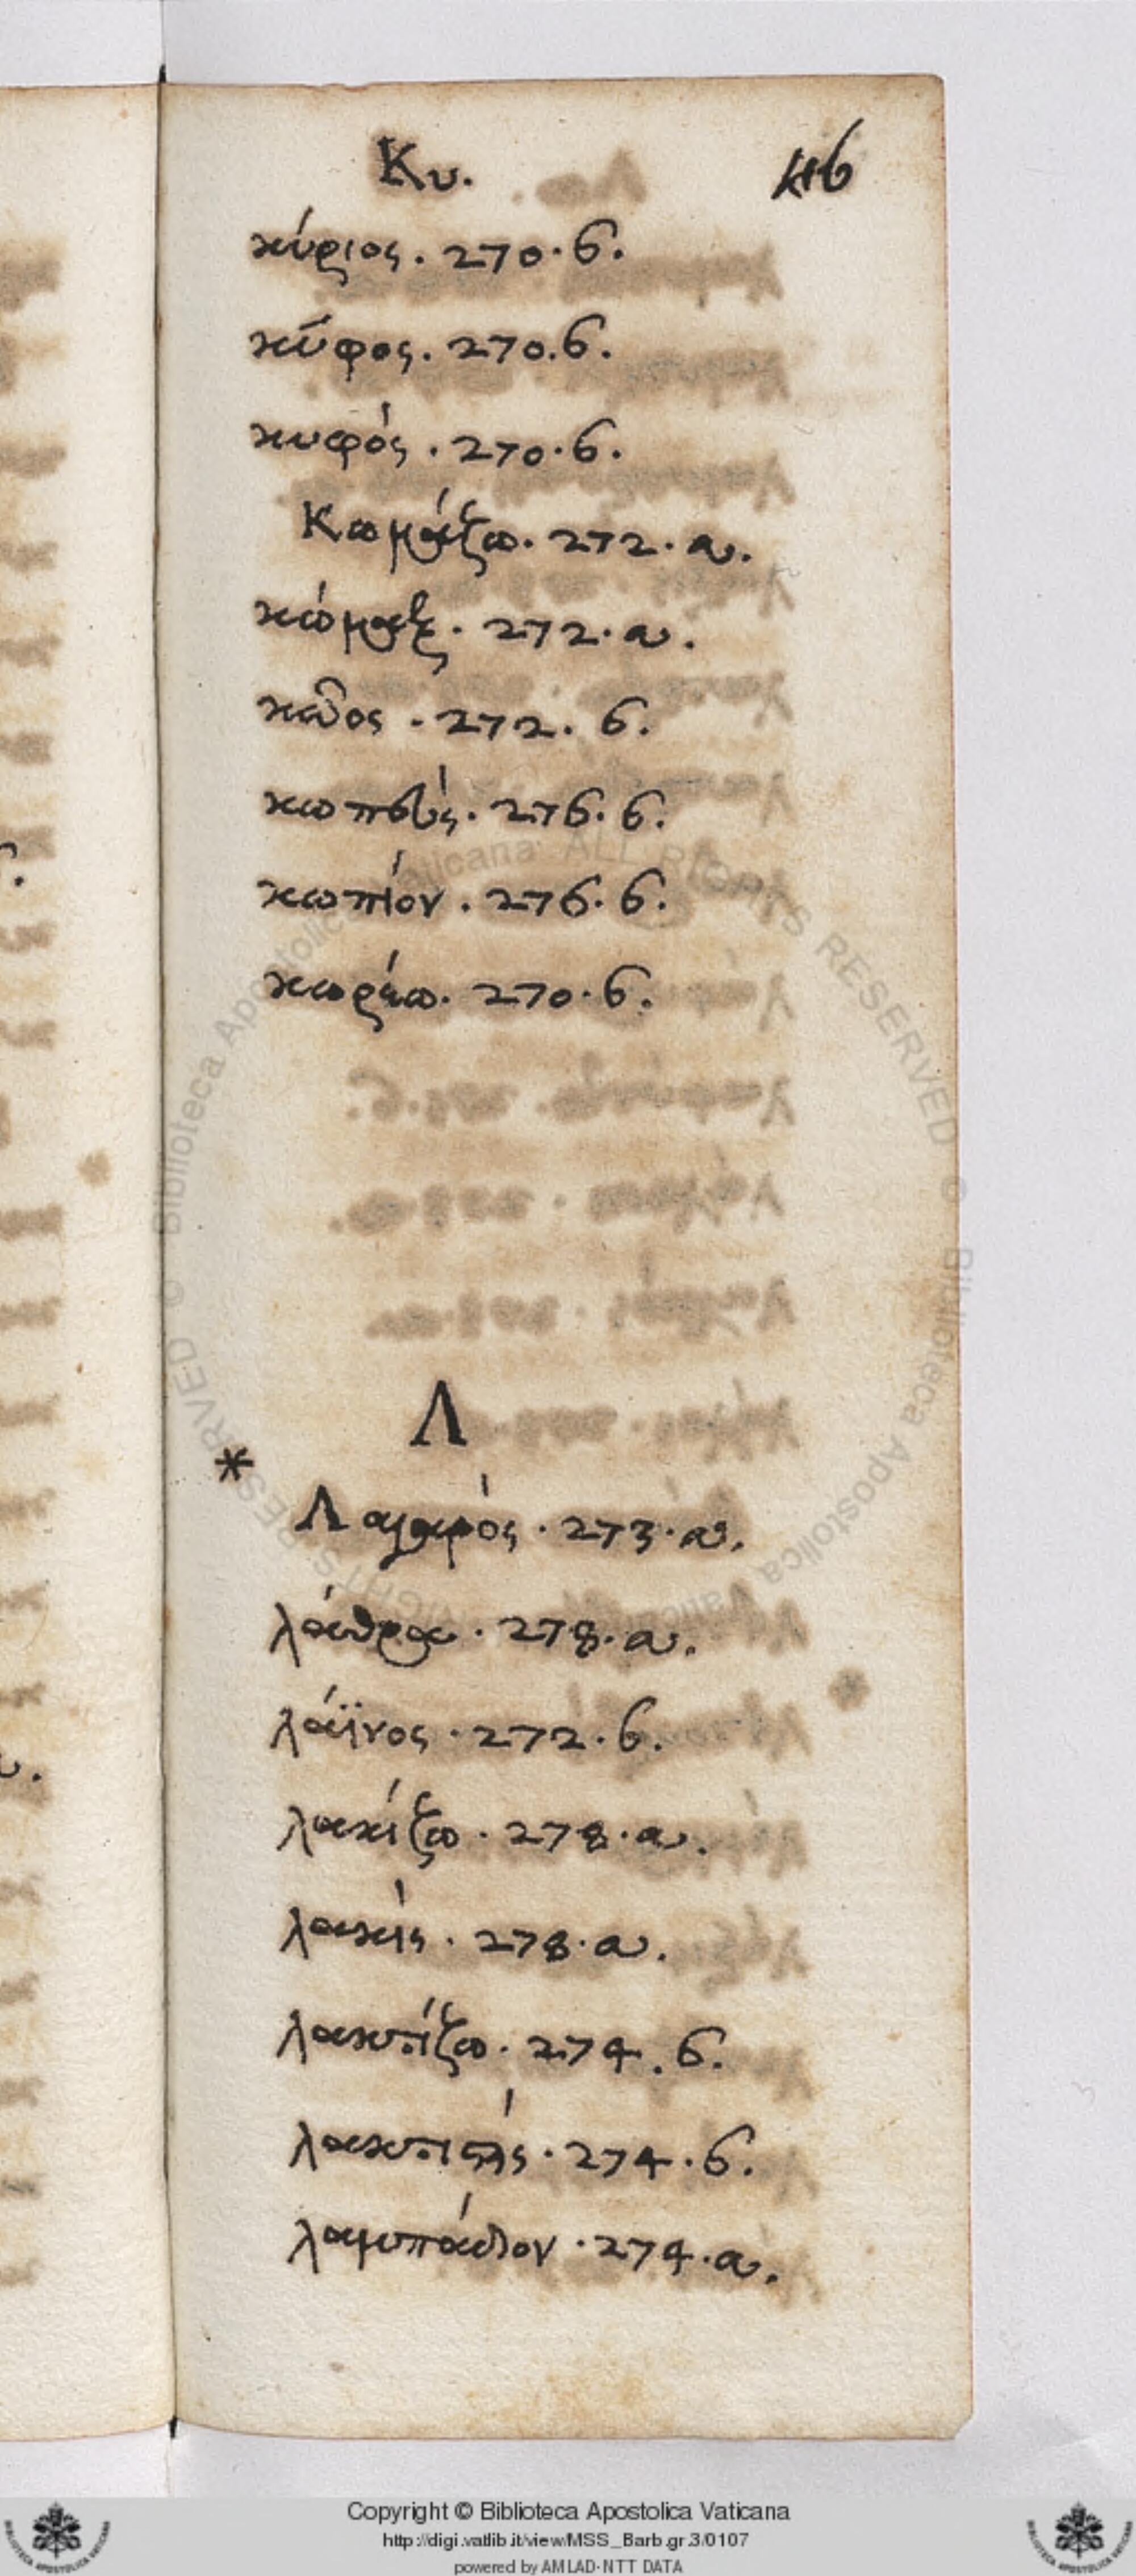 Κυ.
46
κύριος. 270. b.
κῦφος. 270. b.
κυφός. 270. b.
Κωμάζω. 272. a.
κώμαξ. 272. a.
κῶος. 272. b.
κωπεύς. 276. b.
κωπίον. 276. b.
κωρέω. 270. b.
Λ
*
Λαγαρός. 273. a.
λάθρα. 278. a.
λάϊνος. 272. b.
λακίζω. 278. a.
λακίς. 278. a.
λακτίζω. 274. b.
λακτιστής. 274. b.
λαμπάδιον. 274. a.
Copyright © Biblioteca Apostolica Vaticana
http://digi.vatlib.it/view/MSS_Barb.gr.3/0107
powered by AMLAD-NTT DATA